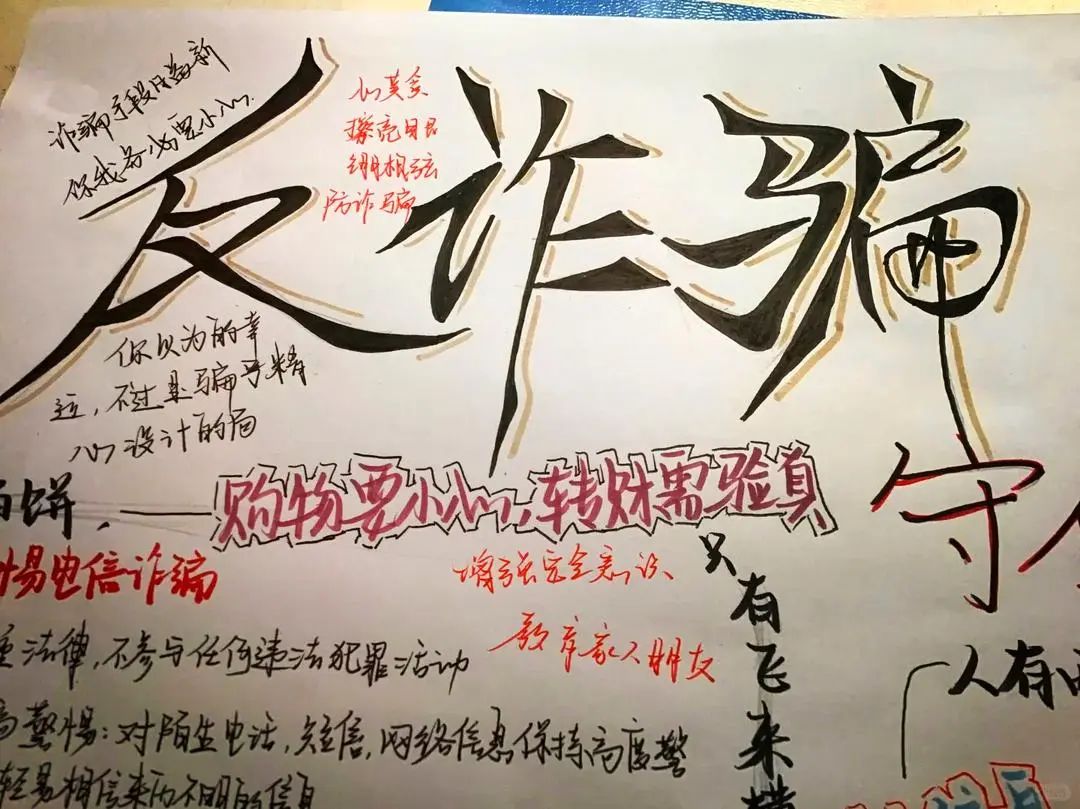 诈骗手段日益新
你我务必要小心
反诈骗
擦亮目
绷相弦
防诈骗
你以为的幸
运，不过是骗子精
心设计的局
饼，
购物要小心，转财需验真
守
惕电信诈骗
增强安全意识
教育家人朋友
只有飞来横
人有
法律，不参与任何违法犯罪活动
高警惕：对陌生电话，短信，网络信息保持高度警
轻易相信来历不明的信息